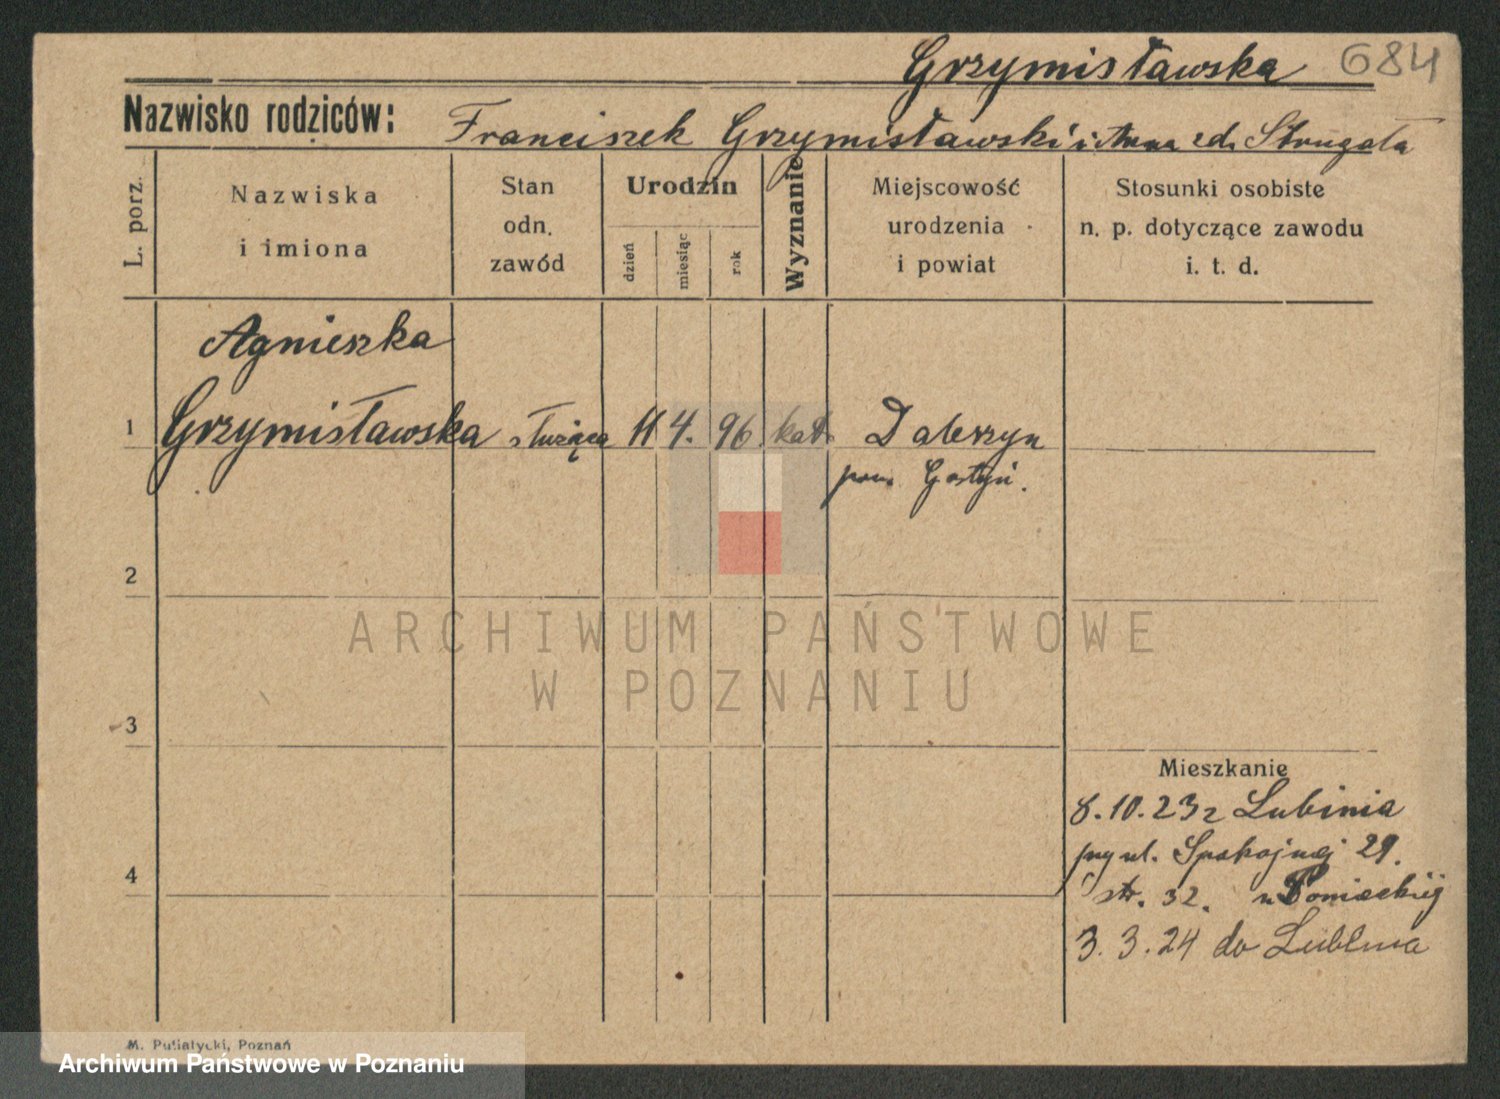 Grzymisławska 684
Nazwisko rodziców: Franciszek Grzymisławski i Anna zd. Strugała
L. porz.
Nazwiska
i imiona
Stan
odn.
zawód
Urodzin
dzień
miesiąc
rok
Wyznanie
Miejscowość
urodzenia
i powiat
Stosunki osobiste
n. p. dotyczące zawodu
i. t. d.
Agnieszka
1 Grzymisławska służąca 11 4. 96 kat. Daleszyn
pow. Gostyń.
2
ARCHIWUM PAŃSTWOWE
W POZNANIU
3
Mieszkanie
8.10.23 z Lubinia
przy ul. Spokojnej 29.
4
str. 32. u Ponieckiej
3.3.24 do Lubinia
M. Putiatycki, Poznań
Archiwum Państwowe w Poznaniu